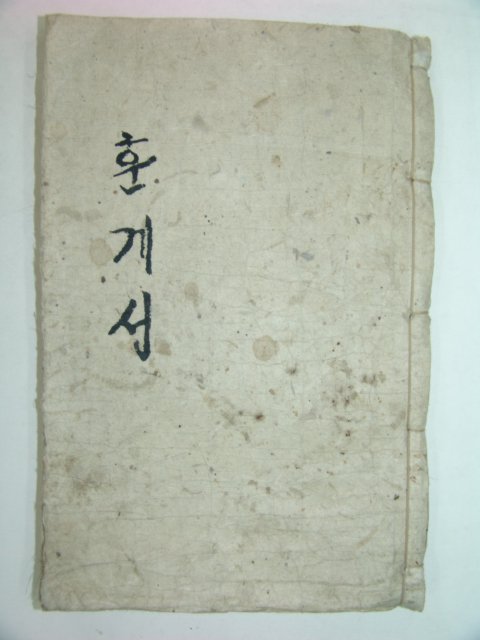 훈계서